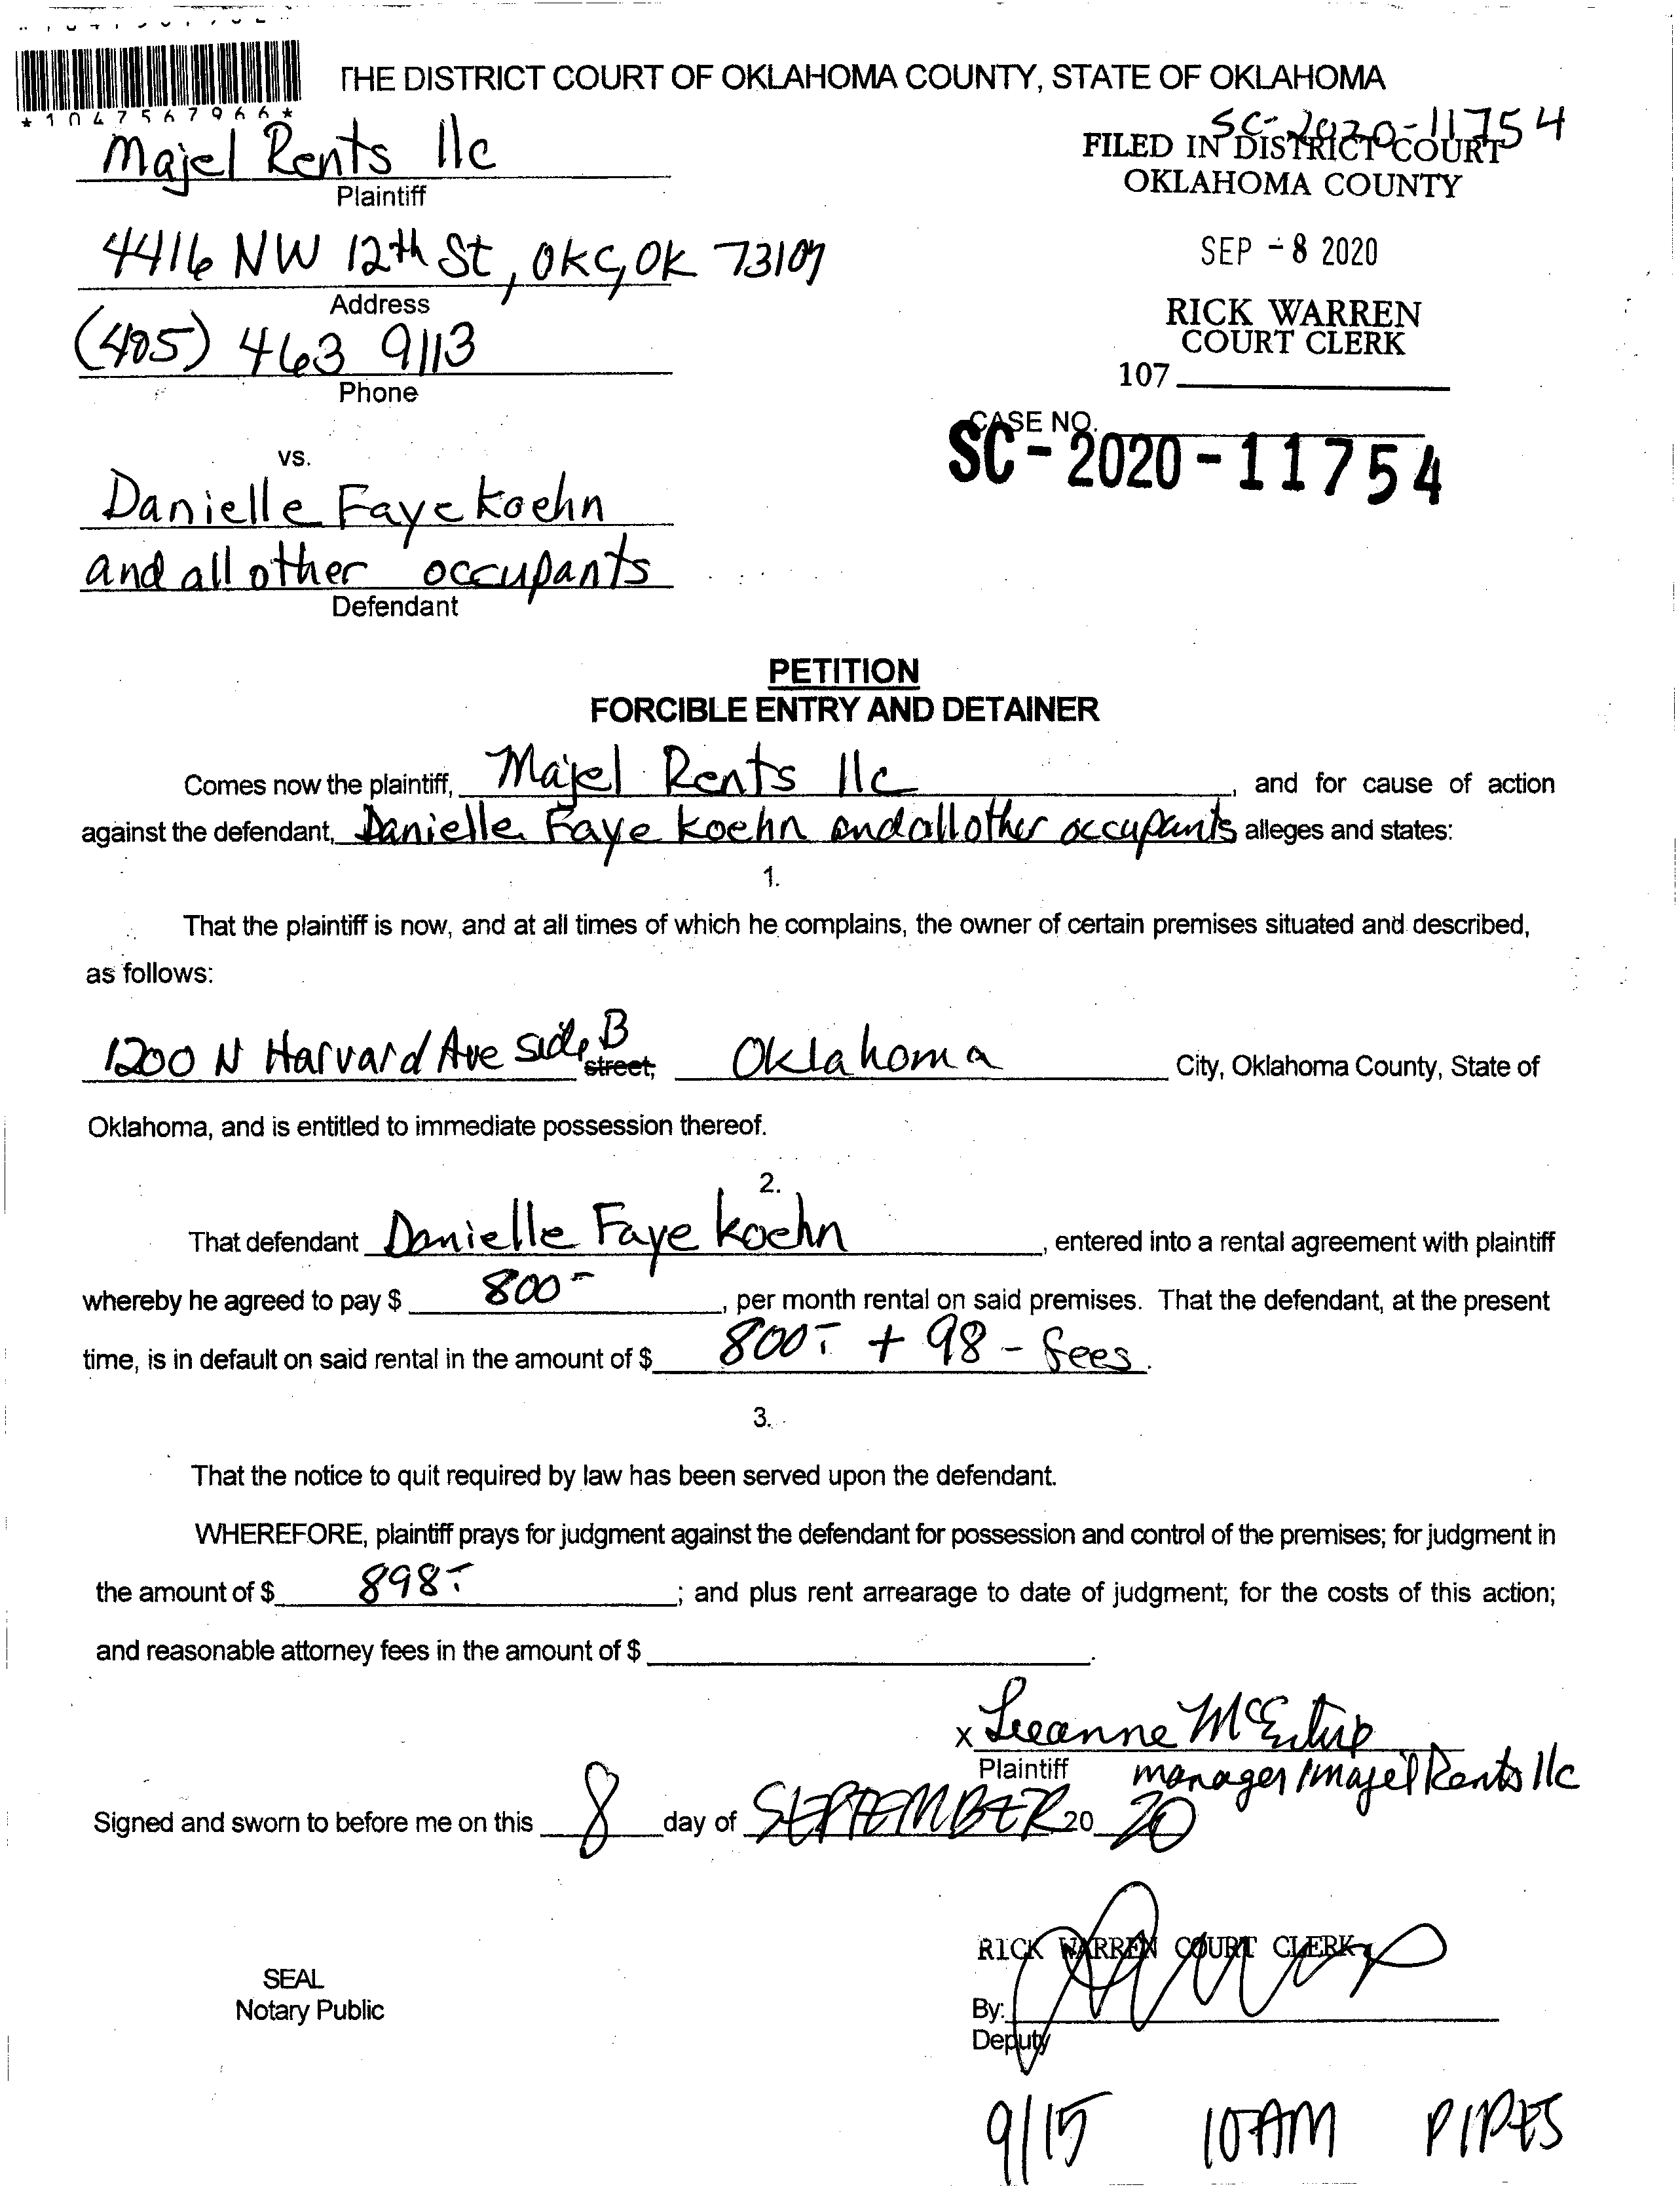 THE DISTRICT COURT OF OKLAHOMA COUNTY, STATE OF OKLAHOMA
*1047567966*
SC-2020-11754
Majel Rents llc
Plaintiff
FILED IN DISTRICT COURT
OKLAHOMA COUNTY
4416 NW 12th St, OKC, OK 73107
Address
SEP -8 2020
(405) 463 9113
Phone
RICK WARREN
COURT CLERK
107
CASE NO.
SC-2020-11754
vs.
Danielle Faye Koehn
and all other occupants
Defendant
PETITION
FORCIBLE ENTRY AND DETAINER
Comes now the plaintiff, Majel Rents llc, and for cause of action
against the defendant, Danielle Faye Koehn and all other occupants alleges and states:
1.
That the plaintiff is now, and at all times of which he complains, the owner of certain premises situated and described,
as follows:
1200 N Harvard Ave side B street, Oklahoma City, Oklahoma County, State of
Oklahoma, and is entitled to immediate possession thereof.
2.
That defendant Danielle Faye Koehn, entered into a rental agreement with plaintiff
whereby he agreed to pay $ 800-, per month rental on said premises. That the defendant, at the present
time, is in default on said rental in the amount of $ 800- + 98- fees.
3.
That the notice to quit required by law has been served upon the defendant.
WHEREFORE, plaintiff prays for judgment against the defendant for possession and control of the premises; for judgment in
the amount of $ 898-; and plus rent arrearage to date of judgment; for the costs of this action;
and reasonable attorney fees in the amount of $ .
x Leeanne McEntire
Plaintiff manager/majel Rents llc
Signed and sworn to before me on this 8 day of SEPTEMBER 20 20
RICK WARREN COURT CLERK
SEAL
Notary Public
By:
Deputy
9/15 10AM PIPES